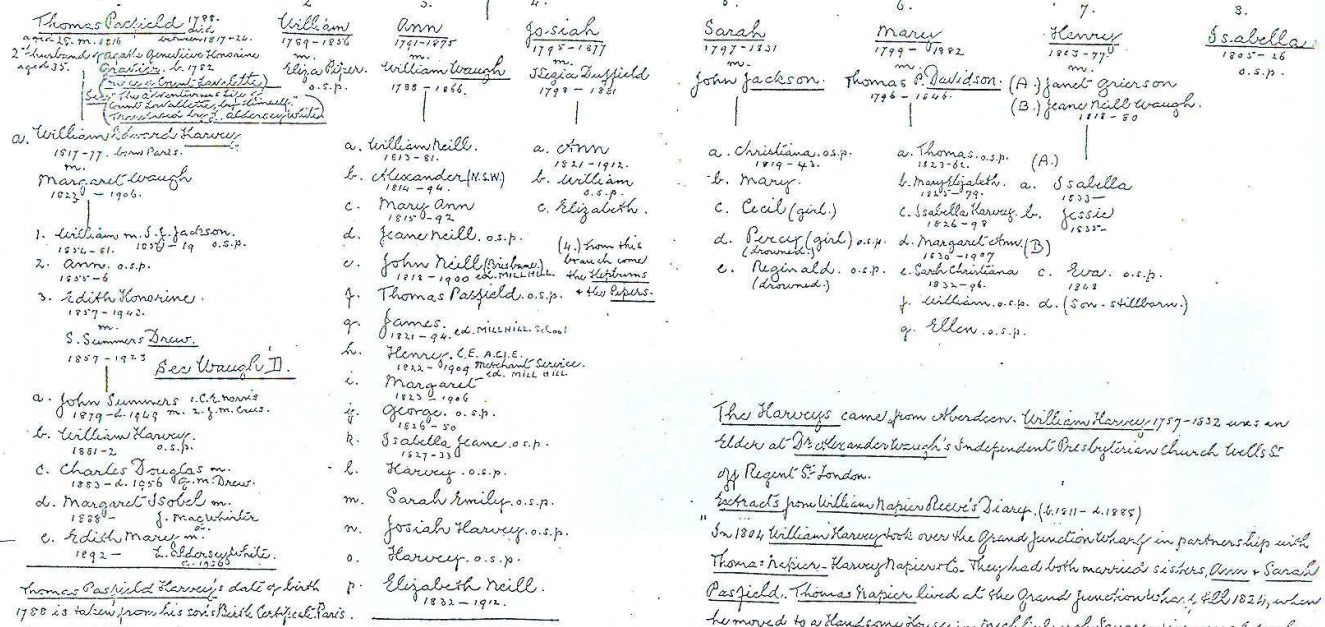 Thomas Pasfield 1788.
aged 28. m. 1816 between 1817-24.
2nd husband of Agathe Genevieve Honorine
aged 35. Gravier. b. 1782
See "The adventurous life of
Count Lavallette, by himself."
Translated by L. Aldersey White
a. William Edward Harvey
1817-77. born Paris.
m.
Margaret Waugh
1823 - 1906.
1. William m. S.J. Jackson.
o.s.p.
2. Ann. o.s.p.
1855-6
3. Edith Honorine.
1857-1942.
m.
S. Summers Drew.
1857-1923
See Waugh D.
a. John Summers
1879-d.1949
b. William Harvey.
1881-2 o.s.p.
c. Charles Douglas m.
1883-d.1956 G.M. Drew.
d. Margaret Isobel m.
1888- J. MacWhirter
e. Edith Mary m.
1892- L. Aldersey White.
d. 1956
Thomas Pasfield Harvey's date of birth
1788 is taken from his son's Birth Certificate. Paris.
2
William
1789-1856
m.
Eliza Piper.
o.s.p.
3.
Ann
1791-1875
m.
William Waugh
1788 - 1866.
a. William Neill.
1813-81.
b. Alexander (N.S.W.)
1814-94.
c. Mary Ann
1815-92
d. Jeane Neill. o.s.p.
e. John Neill (Brisbane)
1818-1900 ed. MILL HILL.
f. Thomas Pasfield. o.s.p.
g. James.
1821-94. ed. MILL HILL School
h. Henry. C.E. A.C.I.E.
1822-1909 Merchant Service.
ed. MILL HILL
i. Margaret
1823-1906
j. George. o.s.p.
1826-50
k. Isabella Jeane. o.s.p.
1827-33
l. Harvey. o.s.p.
m. Sarah Emily. o.s.p.
n. Josiah Harvey. o.s.p.
o. Harvey. o.s.p.
p. Elizabeth Neill.
1832-1912.
4.
Josiah
1795-1877
m.
Duffield
1798-1881
a. Ann
1821-1912.
b. William
o.s.p.
c. Elizabeth.
(4.) From this
branch come
the Hepburns
& the Pipers.
Sarah
1797-1831
m.
John Jackson.
a. Christiana. o.s.p.
1819-43.
b. Mary.
c. Cecil (girl.)
d. Percy (girl) o.s.p.
(drowned.)
e. Reginald. o.s.p.
(drowned.)
6.
Mary
1799 - 1882
m.
Thomas P. Davidson.
1796-1846.
a. Thomas. o.s.p.
1823-62.
b. Mary Elizabeth.
1825-79.
c. Isabella Harvey.
1826-98
d. Margaret Ann.
1830-1907
e. Sarah Christiana
1832-96.
f. William. o.s.p.
g. Ellen. o.s.p.
7.
Henry
1803-77.
m.
(A.) Janet Grierson
(B.) Jeane Neill Waugh.
1818-80
(A.)
a. Isabella
1833-
b. Jessie
1835-
(B)
c. Eva. o.s.p.
1848
d. (Son - stillborn.)
8.
Isabella.
1805-26
o.s.p.
The Harveys came from Aberdeen. William Harvey 1757-1832 was an
Elder at Dr. Alexander Waugh's Independent Presbyterian Church Wells St
off Regent St. London.
Extracts from William Napier Reeve's Diary. (b.1811-d.1888)
"In 1804 William Harvey took over the Grand Junction Wharf in partnership with
Thomas Napier - Harvey Napier & Co. They had both married sisters, Ann & Sarah
Pasfield. Thomas Napier lived at the Grand Junction Wharf till 1824, when
he moved to a Handsome House in